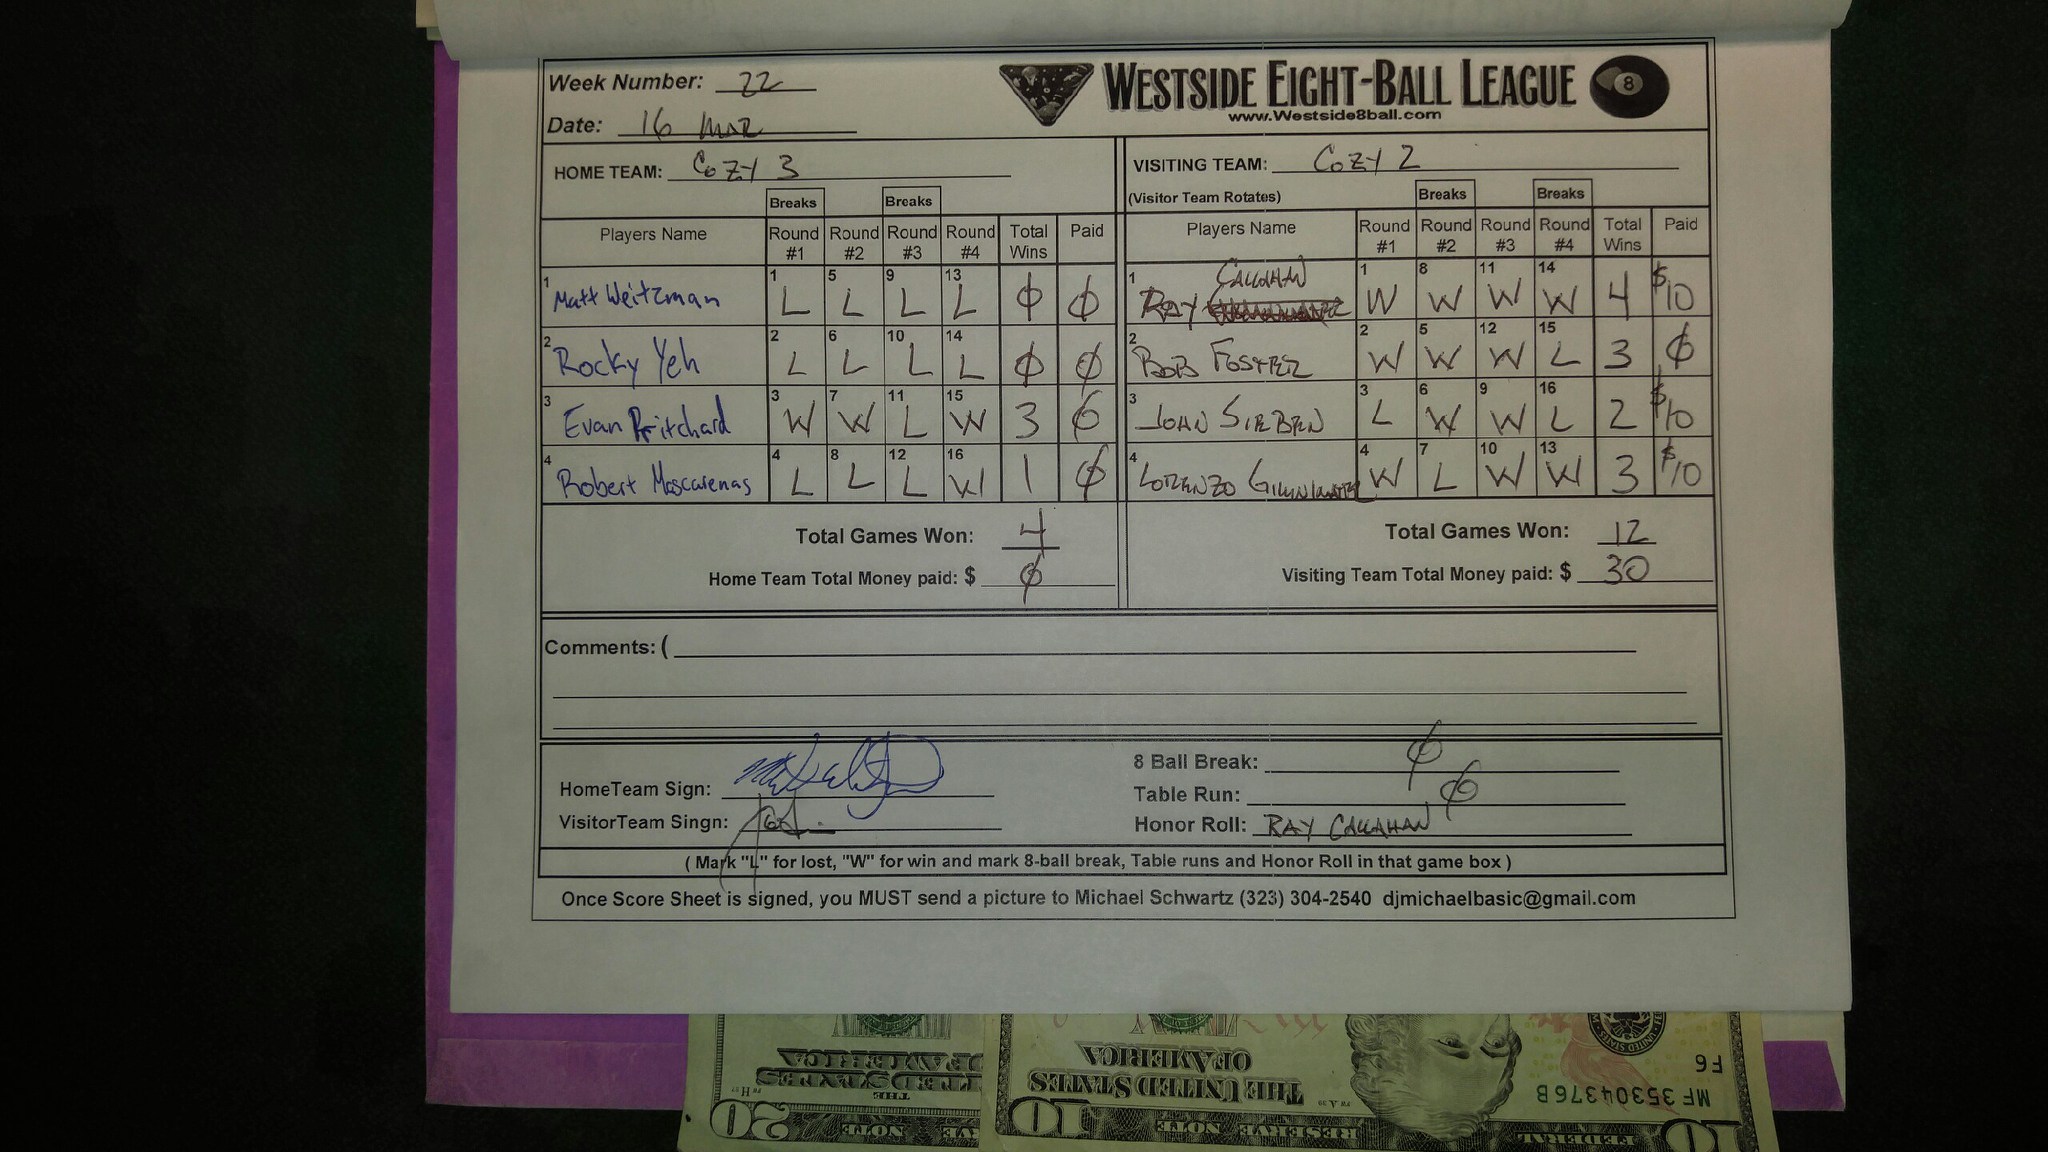 Week Number: 22
WESTSIDE EIGHT-BALL LEAGUE 8
www.Westside8ball.com
Date: 16 MAR
HOME TEAM: COZY 3
VISITING TEAM: COZY 2
(Visitor Team Rotates)
Breaks Breaks
Breaks Breaks
Players Name Round #1 Round #2 Round #3 Round #4 Total Wins Paid
1 Matt Weitzman 1 L 5 L 9 L 13 L Ø Ø
2 Rocky Yeh 2 L 6 L 10 L 14 L Ø Ø
3 Evan Pritchard 3 W 7 W 11 L 15 W 3 Ø
4 Robert Mascarenas 4 L 8 L 12 L 16 W 1 Ø
Total Games Won: 4
Home Team Total Money paid: $ Ø
Players Name Round #1 Round #2 Round #3 Round #4 Total Wins Paid
1 RAY CALLAHAN 1 W 8 W 11 W 14 W 4 $10
2 BOB FOSTER 2 W 5 W 12 W 15 L 3 Ø
3 JOHN SIEBEN 3 L 6 W 9 W 16 L 2 $10
4 LORENZO 4 W 7 L 10 W 13 W 3 $10
Total Games Won: 12
Visiting Team Total Money paid: $ 30
Comments: (
HomeTeam Sign:
VisitorTeam Singn:
8 Ball Break: Ø
Table Run: Ø
Honor Roll: RAY CALLAHAN
( Mark "L" for lost, "W" for win and mark 8-ball break, Table runs and Honor Roll in that game box )
Once Score Sheet is signed, you MUST send a picture to Michael Schwartz (323) 304-2540 djmichaelbasic@gmail.com
F6
MF 35304376B
THE UNITED STATES
OF AMERICA
FEDERAL RESERVE NOTE
10
10
THE
ITEDSTATES
OF AMERICA
VE NOTE
20